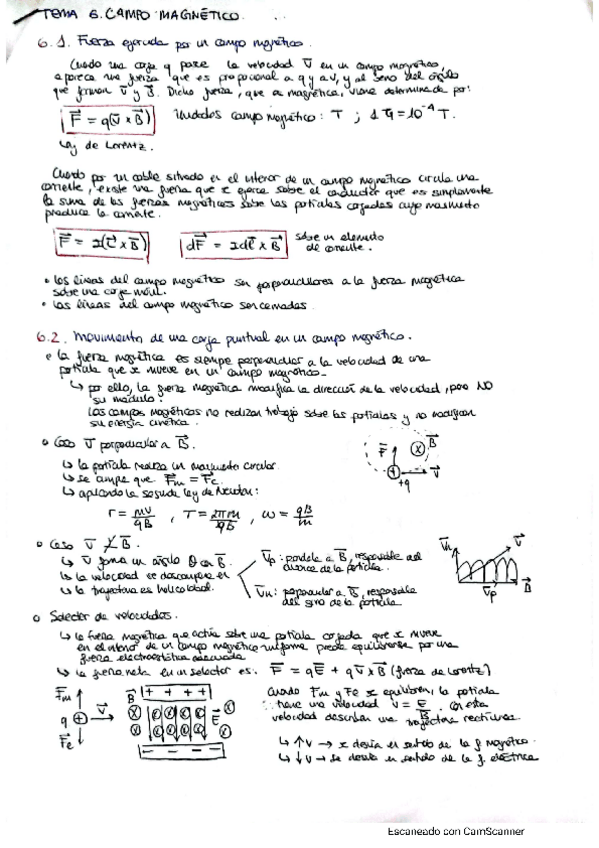 TEMA 6. CAMPO MAGNÉTICO.
6.1. Fuerza ejercida por un campo magnético.
Cuando una carga q posee la velocidad v⃗ en un campo magnético,
aparece una fuerza que es proporcional a q y a v, y al seno del ángulo
que forman v⃗ y B⃗. Dicha fuerza, que es magnética, viene determinada por:
F⃗ = q(v⃗ x B⃗) Unidades campo magnético: T ; 1 G = 10⁻⁴ T.
Ley de Lorentz.
Cuando por un cable situado en el interior de un campo magnético circula una
corriente, existe una fuerza que se ejerce sobre el conductor que es simplemente
la suma de las fuerzas magnéticas sobre las partículas cargadas cuyo movimiento
produce la corriente.
F⃗ = I(L⃗ x B⃗) dF⃗ = Idℓ⃗ x B⃗ sobre un elemento
de corriente.
• Las líneas del campo magnético son perpendiculares a la fuerza magnética
sobre una carga móvil.
• Las líneas del campo magnético son cerradas.
6.2. Movimiento de una carga puntual en un campo magnético.
• La fuerza magnética es siempre perpendicular a la velocidad de una
partícula que se mueve en un campo magnético.
↳ por ello, la fuerza magnética modifica la dirección de la velocidad, pero NO
su módulo.
Los campos magnéticos no realizan trabajo sobre las partículas y no modifican
su energía cinética.
o Caso v⃗ perpendicular a B⃗.
↳ la partícula realiza un movimiento circular.
↳ se cumple que F⃗m = F⃗c
↳ aplicando la segunda ley de Newton:
r = mv/qB , T = 2πm/qB , ω = qB/m
F⃗ B⃗ v⃗ +q
o Caso v⃗ ⊥̸ B⃗.
↳ v⃗ forma un ángulo θ con B⃗.
↳ la velocidad se descompone en
↳ la trayectoria es helicoidal.
v⃗p: paralela a B⃗, responsable del
avance de la partícula.
v⃗n: perpendicular a B⃗, responsable
del giro de la partícula
v⃗n v⃗ v⃗p B⃗
o Selector de velocidades.
↳ la fuerza magnética que actúa sobre una partícula cargada que se mueve
en el interior de un campo magnético uniforme puede equilibrarse por una
fuerza electrostática adecuada
↳ la fuerza neta en un selector es: F⃗ = qE⃗ + qv⃗ x B⃗ (fuerza de Lorentz)
F⃗m q + v⃗ F⃗e
B⃗ + + + + E⃗
Cuando Fm y Fe se equilibren, la partícula
tiene una velocidad v = E/B. Con esta
velocidad describen una trayectoria rectilínea.
↳ ↑v → se desvía en sentido de la f magnética.
↳ ↓v → se desvía en sentido de la f. eléctrica
Escaneado con CamScanner